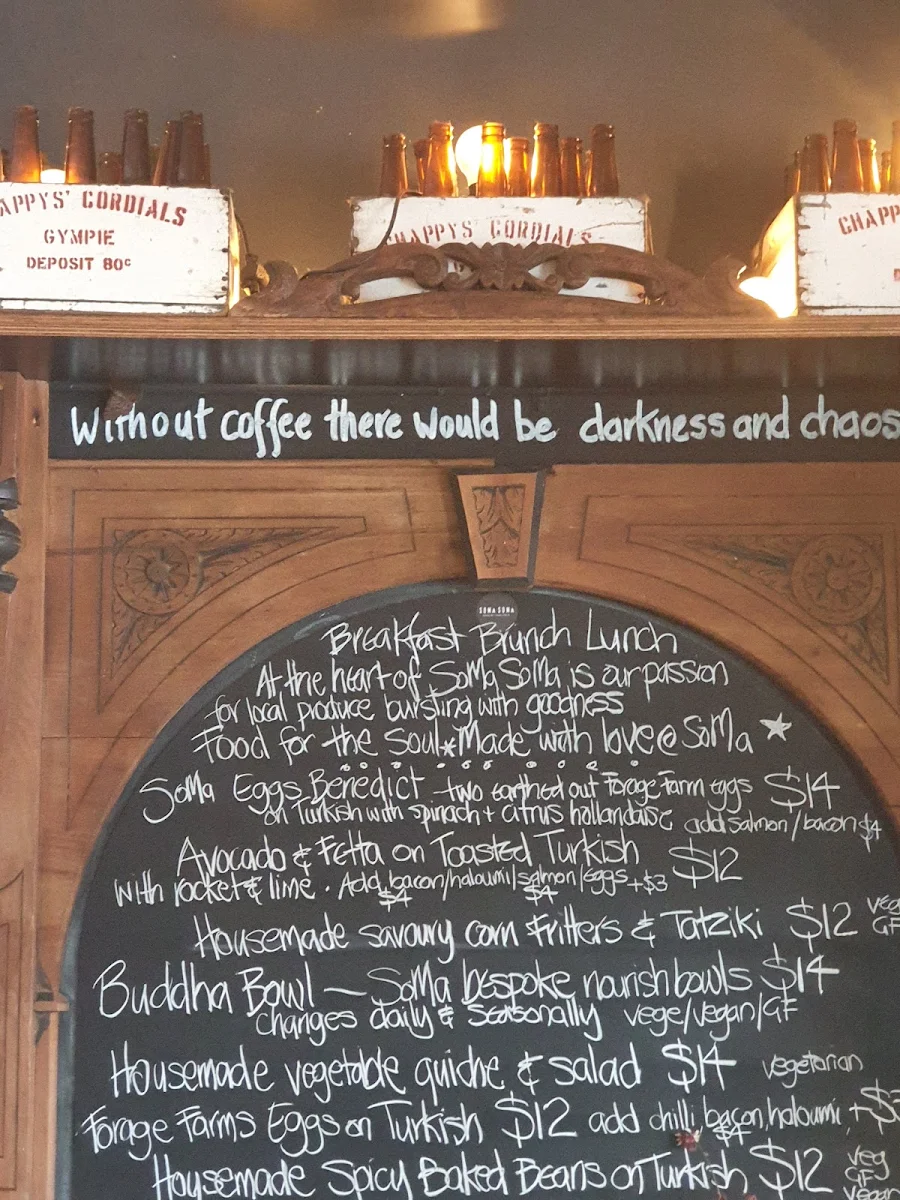 APPYS' CORDIALS
GYMPIE
DEPOSIT 80c
CHAPPYS' CORDIALS
CHAPP
Without coffee there would be darkness and chaos
SOMA SOMA
Breakfast Brunch Lunch
At the heart of SoMa SoMa is our passion
for local produce bursting with goodness
Food for the soul * Made with love @ SoMa
SoMa Eggs Benedict - two earthed out Forage Farm eggs $14
on Turkish with spinach + citrus hollandaise add salmon/bacon $4
Avocado & Fetta on Toasted Turkish $12
with rocket & lime · Add bacon/haloumi/salmon/eggs +$3
$4 $4
Housemade savoury corn fritters & Tatziki $12 veg
GF
Buddha Bowl — SoMa bespoke nourish bowls $14
changes daily & seasonally vege/vegan/GF
Housemade vegetable quiche & salad $14 vegetarian
Forage Farms Eggs on Turkish $12 add chilli, bacon, haloumi, +$3
$4
Housemade Spicy Baked Beans on Turkish $12 veg
GF
vegan